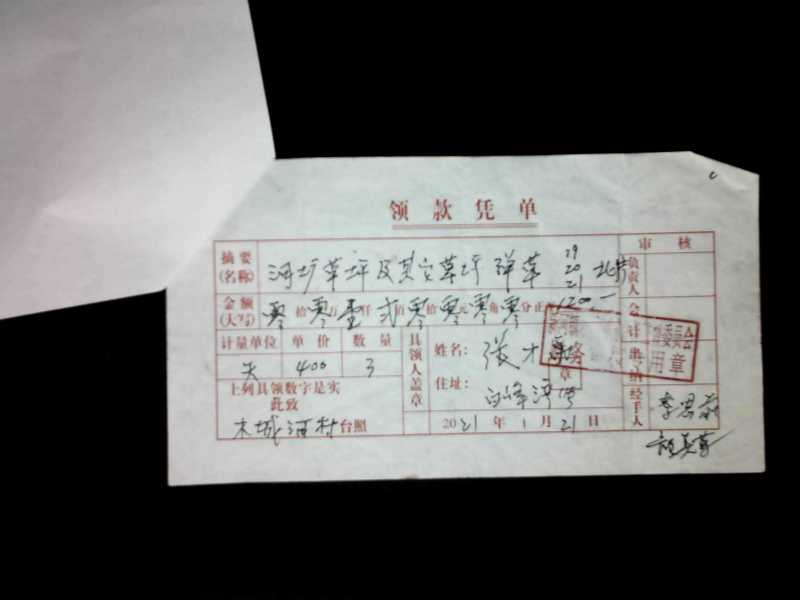 领款凭单
摘要(名称) 河圹草坪及其它草坪 弹草 19 20 21 北
金额(大写) 零拾零万壹仟贰佰零拾零元零角零分正 1200
计量单位 单价 数量
天 400 3
上列具领数字是实
此致
木城河村台照
具领人盖章
姓名: 张才
住址: 白峰
2021年1月21日
审核
负责人
会计
出纳
经手人 李
委员会
用章